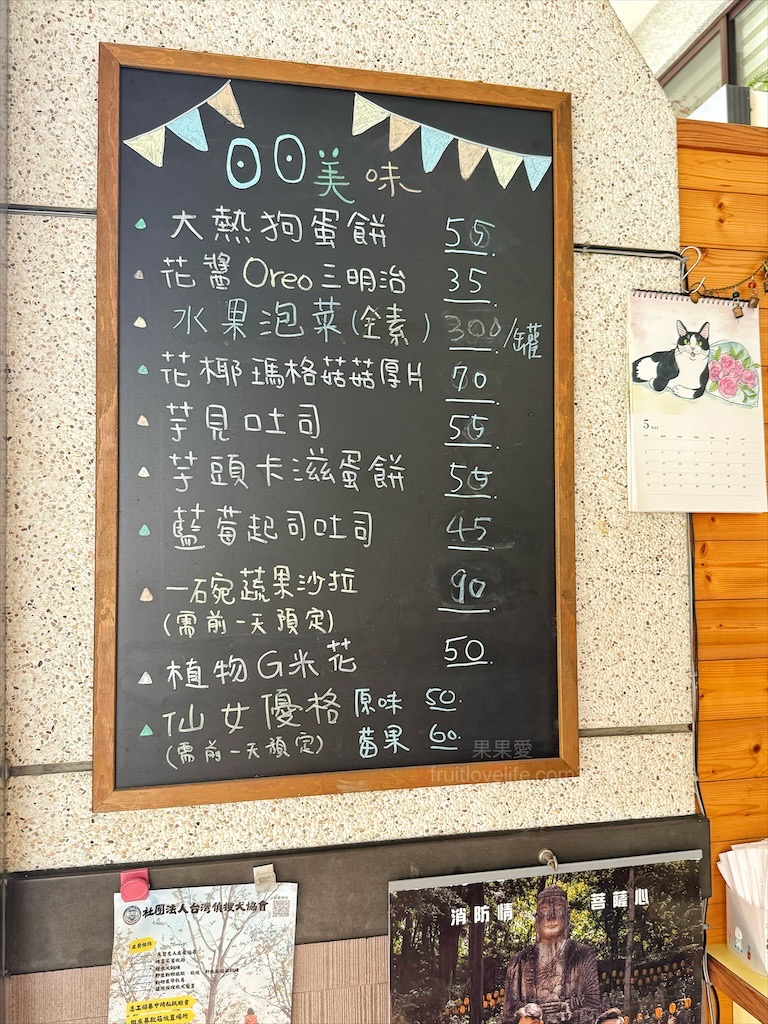 00美味
大熱狗蛋餅 55
花醬Oreo三明治 35
水果泡菜(全素) 300/罐
花椰瑪格菇菇厚片 70
芋見吐司 55
芋頭卡滋蛋餅 55
藍莓起司吐司 45
一碗蔬果沙拉 90
(需前一天預定)
植物G米花 50
仙女優格 原味 50.
(需前一天預定) 莓果 60.
果果愛
fruitlovelife.com
5
社團法人台灣偵搜犬協會
消防情 菩薩心